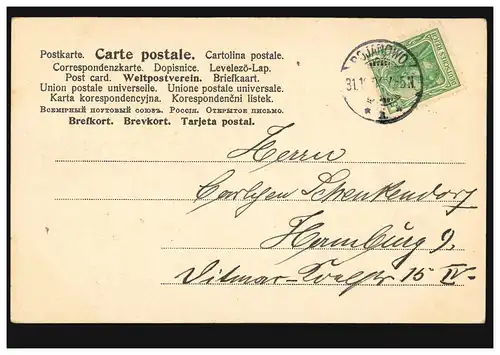 Postkarte. Carte postale. Cartolina postale.
Correspondenzkarte. Dopisnice. Levelező-Lap.
Post card. Weltpostverein. Briefkaart.
Union postale universelle. Unione postale universale.
Karta korespondencyjna. Korespondenční listek.
Всемірный почтовый союзъ. Россія. Открытое письмо.
Brefkort. Brevkort. Tarjeta postal.
BOJANOWO
31.1
5.N
Herrn
Carlchen Schenkendorf
Hamburg 9.
Ditmar-Koelstr 15 IV.